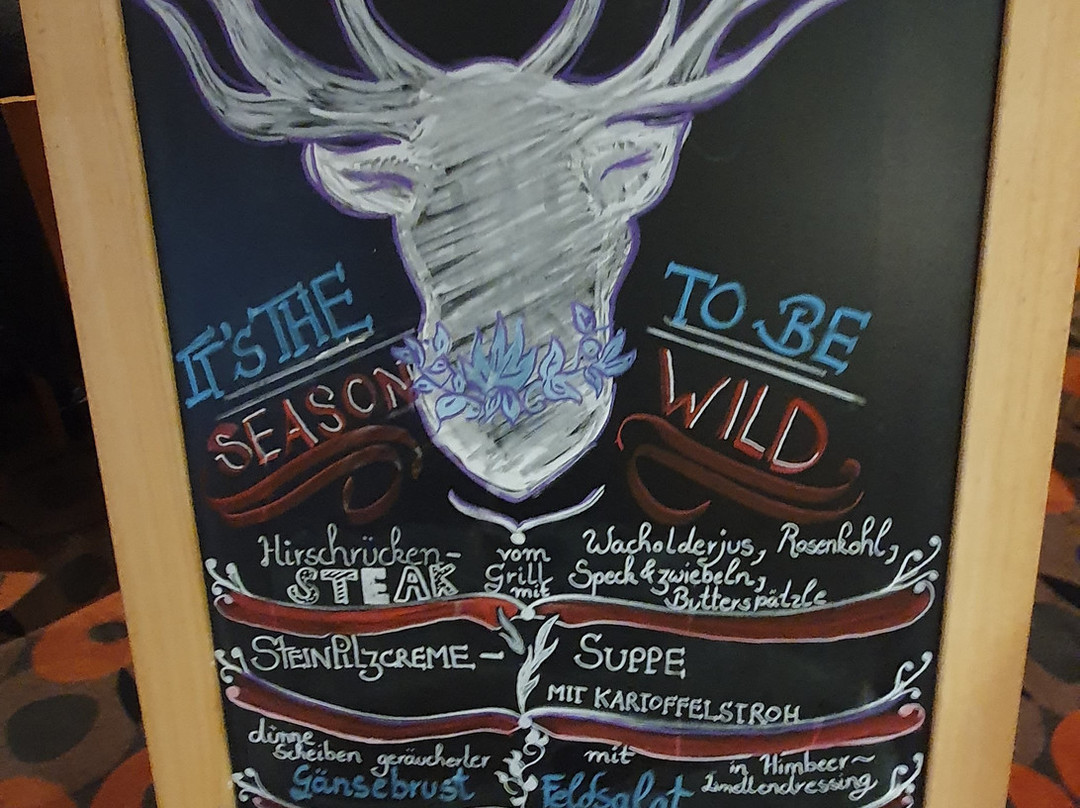 IT'S THE
SEASON
TO BE
WILD
Hirschrücken-
STEAK
vom
Grill
mit
Wacholderjus, Rosenkohl,
Speck & zwiebeln,
Butterspätzle
STEINPILZCREME -
SUPPE
MIT KARTOFFELSTROH
dünne
Scheiben geräucherter
Gänsebrust
mit
Feldsalat
in Himbeer~
Limettendressing